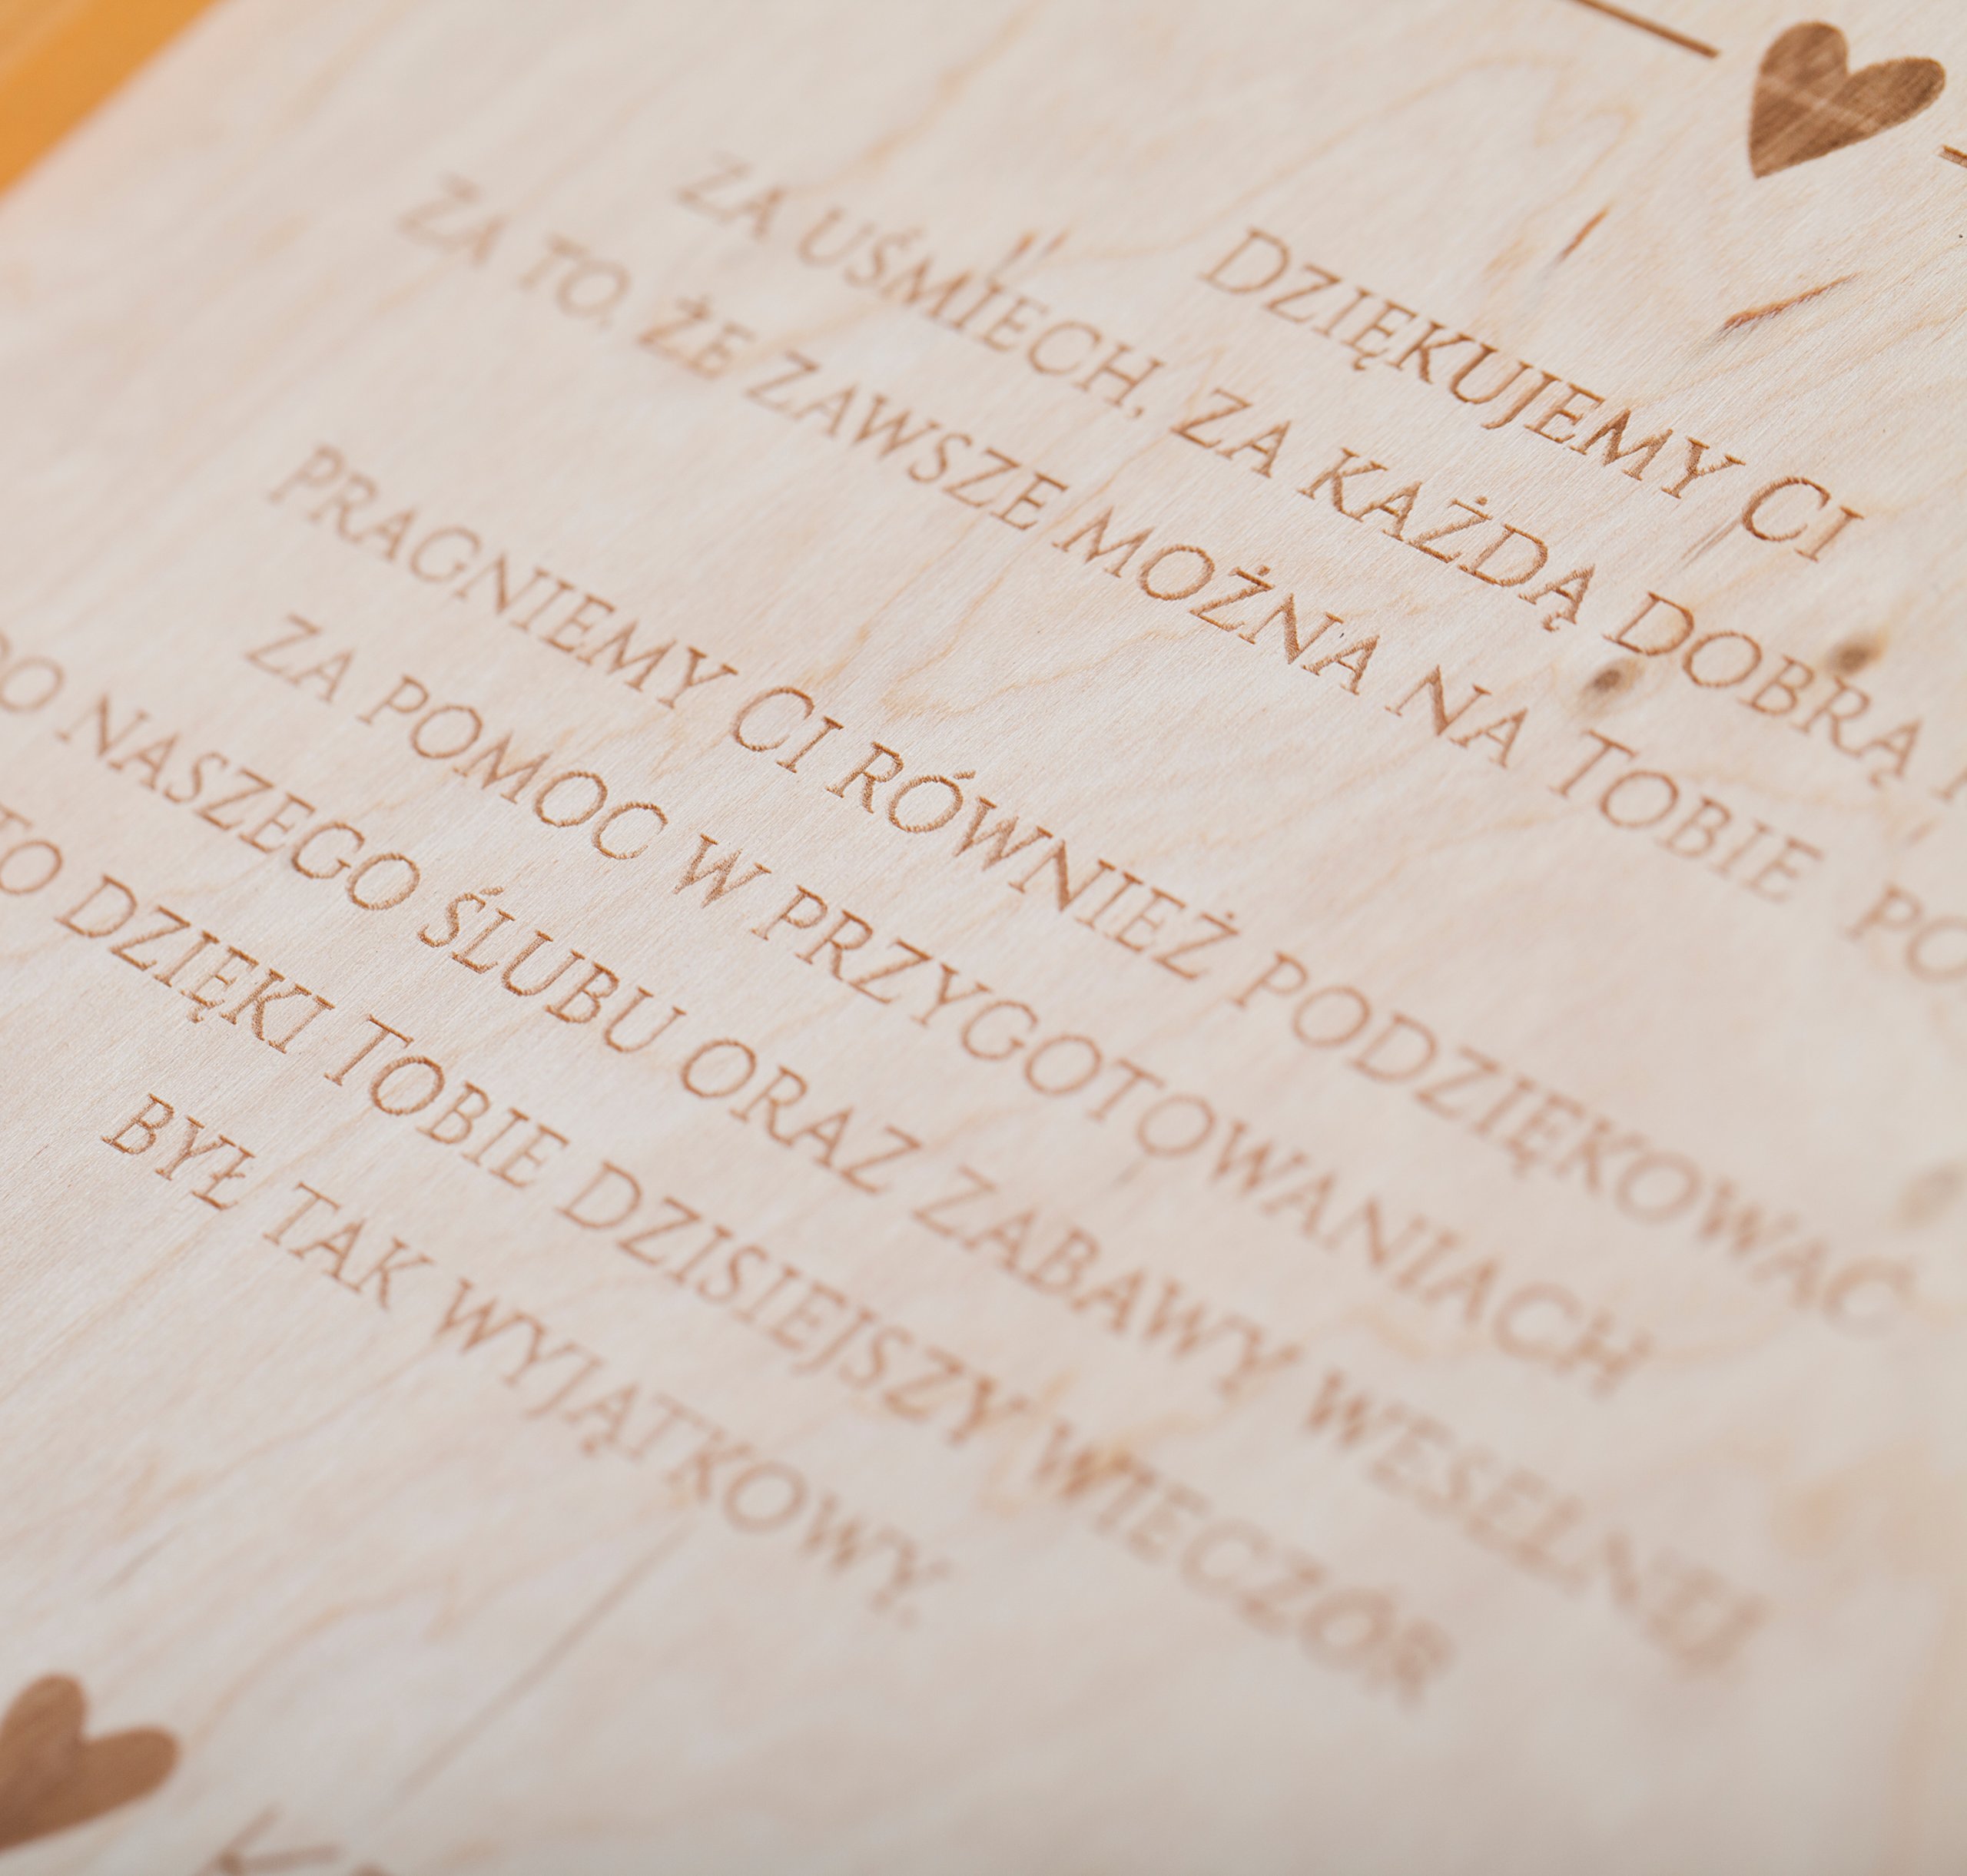 DZIĘKUJEMY CI
ZA UŚMIECH, ZA KAŻDĄ DOBRĄ
ZA TO, ŻE ZAWSZE MOŻNA NA TOBIE
PRAGNIEMY CI RÓWNIEŻ PODZIĘKOWAĆ
ZA POMOC W PRZYGOTOWANIACH
DO NASZEGO ŚLUBU ORAZ ZABAWY WESELNEJ
TO DZIĘKI TOBIE DZISIEJSZY WIECZÓR
BYŁ TAK WYJĄTKOWY.